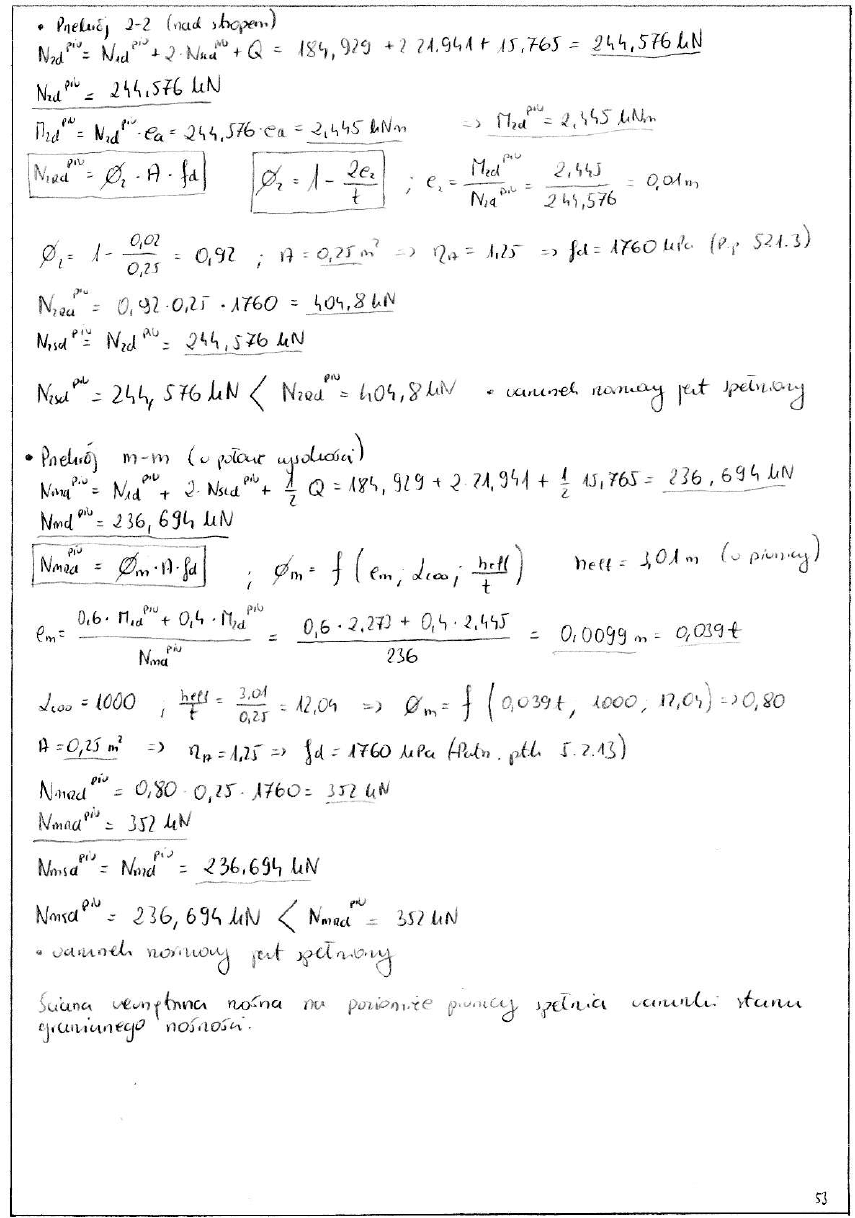 • Przekrój 2-2 (nad stropem)
N2d^piw = N1d^piw + 2·Nsłd^piw + Q = 184,929 + 2·21,941 + 15,765 = 244,576 kN
N2d^piw = 244,576 kN
M2d^piw = N2d^piw · ea = 244,576 · ea = 2,445 kNm => M2d^piw = 2,445 kNm
N2Rd^piw = Ø2 · A · fd Ø2 = 1 - 2e2/t ; e2 = M2d^piw / N2d^piw = 2,445 / 244,576 = 0,01 m
Ø2 = 1 - 0,02/0,25 = 0,92 ; A = 0,25 m² => ηA = 1,25 => fd = 1760 kPa (P.p 5.2.1.3)
N2Rd^piw = 0,92 · 0,25 · 1760 = 404,8 kN
N2sd^piw = N2d^piw = 244,576 kN
N2sd^piw = 244,576 kN < N2Rd^piw = 404,8 kN • warunek normowy jest spełniony
• Przekrój m-m (w połowie wysokości)
Nmd^piw = N1d^piw + 2·Nsłd^piw + 1/2 Q = 184,929 + 2·21,941 + 1/2 15,765 = 236,694 kN
Nmd^piw = 236,694 kN
NmRd^piw = Øm·A·fd ; Øm = f (em; αc∞; heff/t) heff = 3,01 m (w piwnicy)
em = 0,6·M1d^piw + 0,4·M2d^piw / Nmd^piw = 0,6·2,273 + 0,4·2,445 / 236 = 0,0099 m = 0,039t
αc∞ = 1000 ; heff/t = 3,01/0,25 = 12,04 => Øm = f (0,039t, 1000, 12,04) => 0,80
A = 0,25 m² => ηA = 1,25 => fd = 1760 kPa (Patrz. pkt. 5.2.13)
NmRd^piw = 0,80 · 0,25 · 1760 = 352 kN
NmRd^piw = 352 kN
Nmsd^piw = Nmd^piw = 236,694 kN
Nmsd^piw = 236,694 kN < NmRd^piw = 352 kN
• warunek normowy jest spełniony
Ściana wewnętrzna nośna na poziomie piwnicy spełnia warunki stanu
granicznego nośności.
53